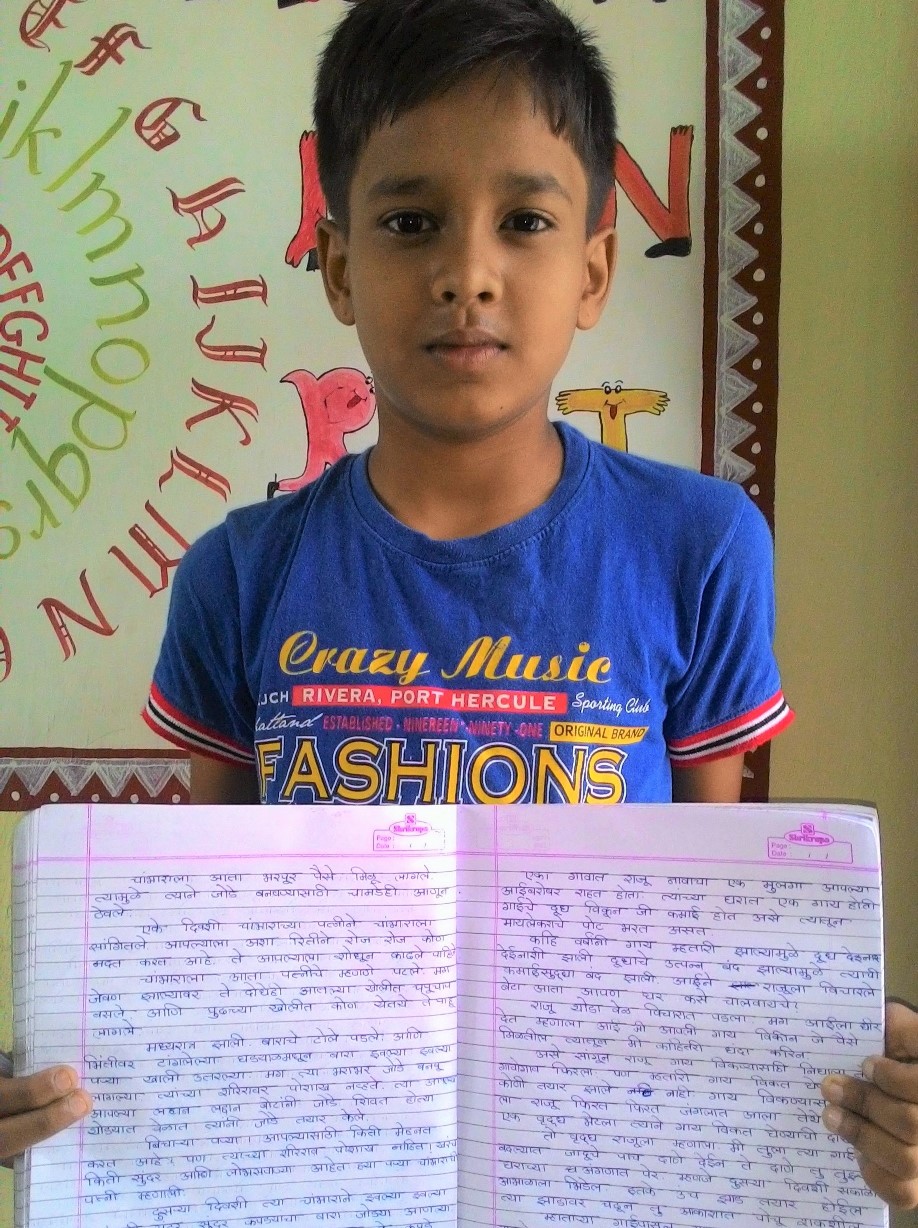 G
h
I J
K
L
M
N
i k l m n o p q r s
E F F G H I
N
P
T
Crazy Music
UCH RIVERA, PORT HERCULE Sporting Club
ESTABLISHED - NINEREEN - NINETY - ONE ORIGINAL BRAND
FASHIONS
Shrikrupa
Page:
Date:
चांभाराला आता भरपूर पैसे मिळू लागले
त्यामुळे त्याने जोडे बनवण्यासाठी चामडेही आणून
ठेवले.
एके दिवशी चांभाराच्या पत्नीने चांभाराला
सांगितले आपल्याला अशा रितीने रोज रोज कोण
मदत करत आहे. ते आपल्याला शोधून काढले पाहिजे
चांभाराला आता पत्नीचे म्हणणे पटले. मग
जेवण झाल्यावर ते दोघेही आतल्या खोलीत चूपचाप
बसले. आणि पुढच्या खोलीत कोण येतय ते पाहू
लागले
मध्यरात्र झाली बाराचे टोले पडले. आणि
भिंतीवर टांगलेल्या घड्याळामधून बारा इवल्या इवल्या
पऱ्या खाली उतरल्या. मग त्या भराभर जोडे बनवू
लागल्या त्याच्या शरिरावर पोशाख नव्हते. त्या आपल्या
आपल्या लहान लहान बोटांनी जोडे शिवत होत्या
थोड्यात वेळात त्यांनी जोडे तयार केले.
बिचाऱ्या पऱ्या! आपल्यासाठी किती मेहनत
करत आहे, पण त्याच्या शरिराव पोशाय नाहित! खरच
किती सुंदर आणि लोभसवाण्या आहेत ह्या पऱ्या चांभाराची
पत्नी म्हणाली.
दुसऱ्या दिवशी त्या चांभाराने इवल्या इवल्या
सुंदर कपड्याचा बारा जोड्या आणल्या
Shrikrupa
Page:
Date:
एका गावात राजू नावाचा एक मुलगा आपल्या
आईबरोबर राहत होता. त्याच्या घरात एक गाय होती
गाईचे दूध विकून जी कमाई होत असे त्यातून
मायलेकराचे पोट भरत असत.
काहि वर्षांनी गाय म्हतारी झाल्यामुळे दूध देइनाशी
देईनाशी झाली दूधाचे उत्पन्न बंद झाल्यामुळे त्याची
कमाईसुद्धा बंद झाली. आईने राजूला विचारले
बेटा आता आपण घर कसे चालवायचे?
राजू थोडा वेळ विचारात पडला. मग आईला धीर
देत म्हणाला आई मी आपली गाय विकीन जे पैसे
मिळतील त्यातून मी काहितरी धंदा करिन.
असे सांगून राजू गाय विकण्यासाठी निघाला
गावोगाव फिरला. पण म्हतारी गाय विकत
कोणी तयार झाले नाही गाय विकण्यास
ला राजू फिरत फिरत जंगलात आला तेथे
एक वृद्ध भेटला त्याने गाय विकत घेण्याची
तो वृद्ध राजूला म्हणाला मी तुला त्या गाई
बदल्यात जादूचे पाच दाणे देईन ते दाणे तु तुझ्या
घराच्या अंगणात पेर. म्हणजे दुसऱ्या दिवशी सकाळी
आभाळाला भिडेल इतके उंच झाड तयार होईल
त्या झाडावर चढून तु आकाशात पोचू
म्हाताऱ्या